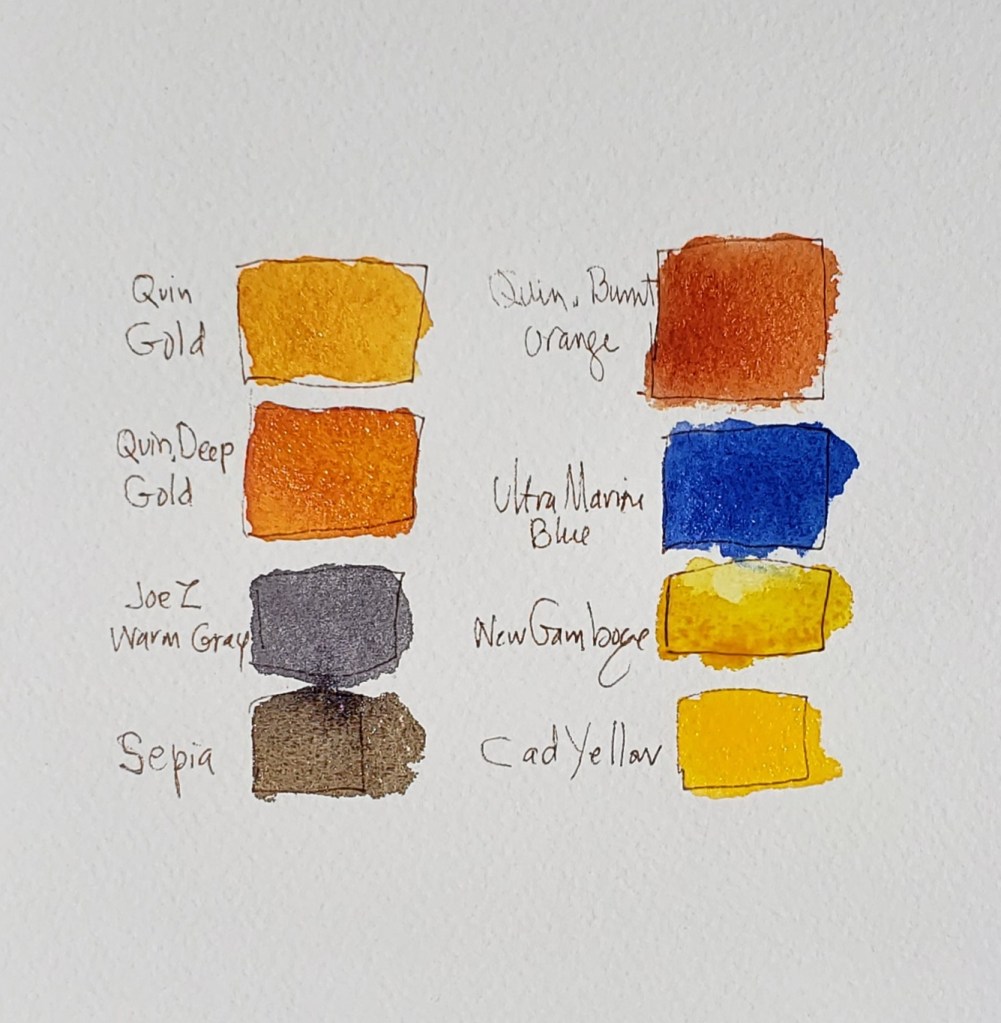 Quin
Gold
Quin. Deep
Gold
Joe Z
Warm Gray
Sepia
Quin. Burnt
Orange
Ultra Marine
Blue
New Gamboge
Cad Yellow